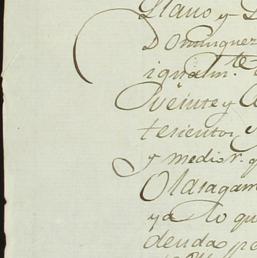 Llano y
Dominguez
igualm.te
veinte y
tesientos y
y medio r.
Olasagam
ya lo qu
deudas po